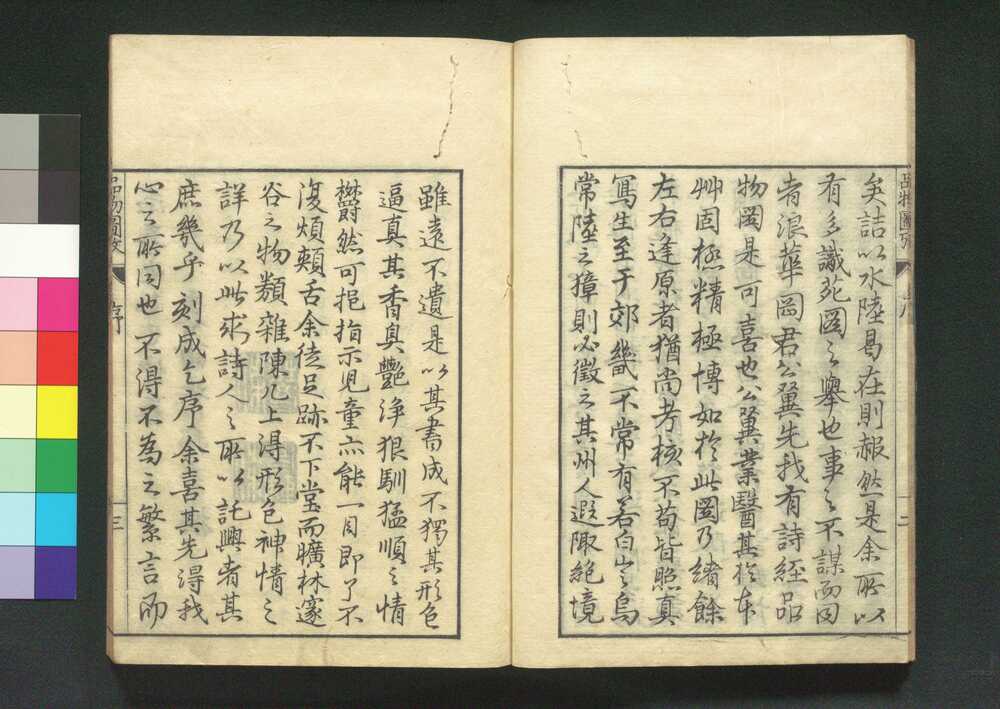 矣詰以水陸曷在則赧然是余所以
有多識茈圖之舉也事之不謀而同
者浪華岡君公翼先我有詩經品
物圖是可喜也公翼業醫其於本
艸固極精極博如於此圖乃緒餘
左右逢原者猶尚考核不苟皆照真
寫生至于郊畿不常有若白山之烏
常陸之獐則必徵之其州人遐陬絕境
雖遠不遺是以其書成不獨其形色
逼真其香臭艷淨狠馴猛順之情
欝然可挹指示児童亦能一目即了不
復煩頰舌余徒足跡不下堂而曠林邃
谷之物類雜陳几上得形色神情之
詳乃以此求詩人之所以託興者其
庶幾乎刻成乞序余喜其先得我
心之所同也不得不為之繁言而
品物圖攷
序
三